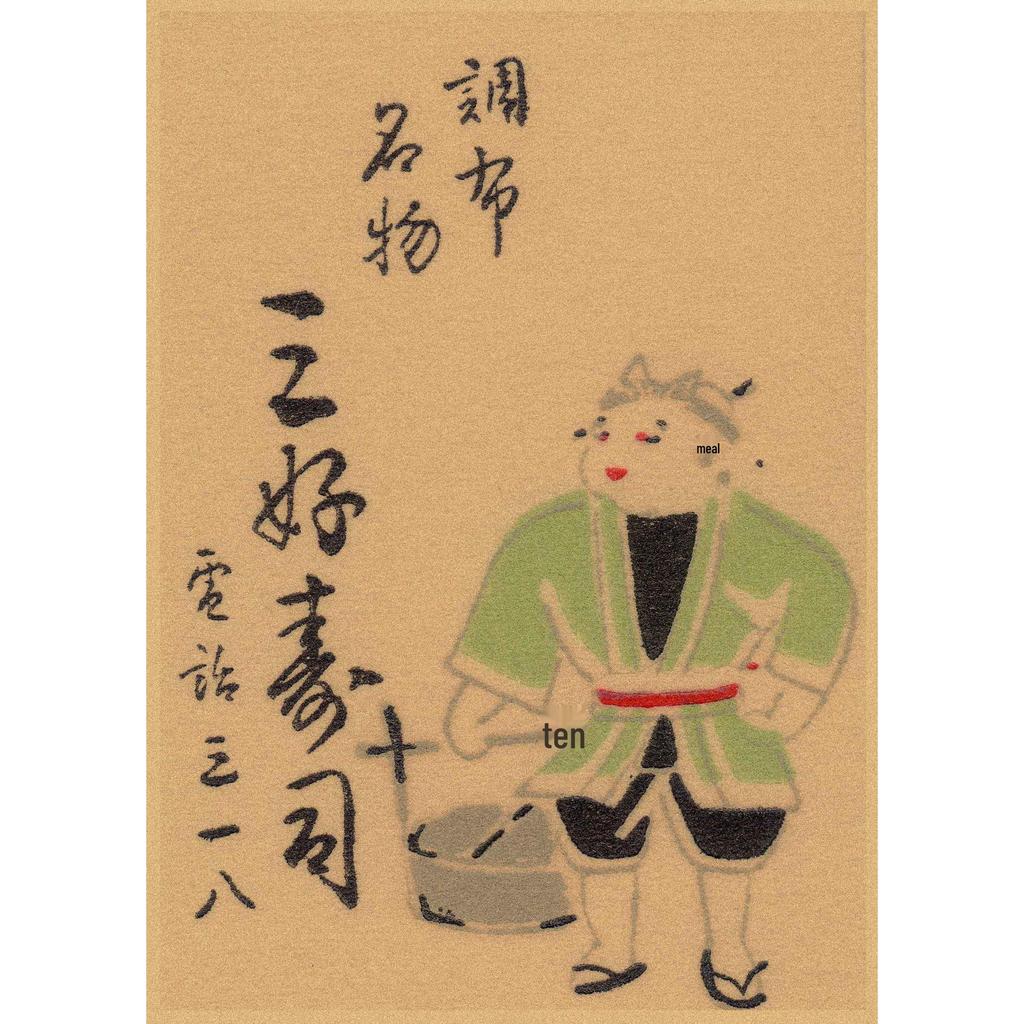 調布
名物
三好寿司
電話三一八
meal
ten